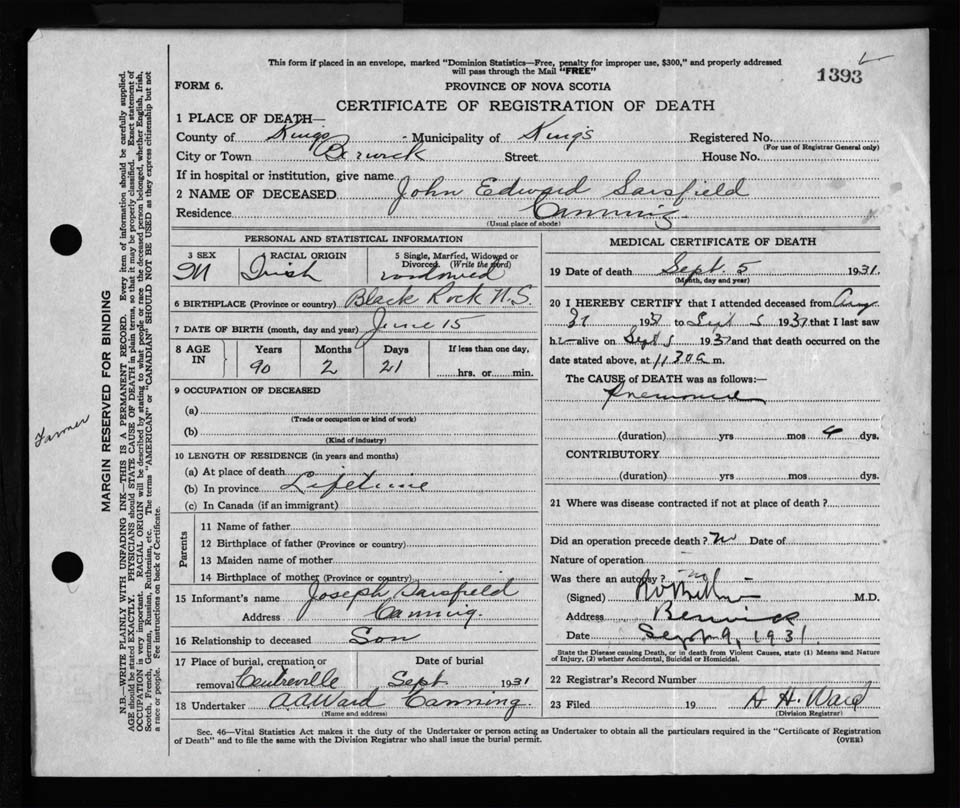 This form if placed in an envelope, marked "Dominion Statistics—Free, penalty for improper use, $300," and properly addressed
will pass through the Mail "FREE"
1393
FORM 6.
PROVINCE OF NOVA SCOTIA
CERTIFICATE OF REGISTRATION OF DEATH
1 PLACE OF DEATH—
County of Kings Municipality of King's Registered No.
(For use of Registrar General only)
City or Town Berwick Street House No.
If in hospital or institution, give name
2 NAME OF DECEASED John Edward Sarsfield
Residence Canning
(Usual place of abode)
PERSONAL AND STATISTICAL INFORMATION
3 SEX RACIAL ORIGIN 5 Single, Married, Widowed or
Divorced. (Write the word)
M Irish widowed
6 BIRTHPLACE (Province or country) Black Rock N.S.
7 DATE OF BIRTH (month, day and year) June 15
8 AGE IN Years Months Days If less than one day,
90 2 21 hrs. or min.
9 OCCUPATION OF DECEASED
(a)
(Trade or occupation or kind of work)
(b)
(Kind of industry)
10 LENGTH OF RESIDENCE (in years and months)
(a) At place of death
(b) In province Lifetime
(c) In Canada (if an immigrant)
Parents
11 Name of father
12 Birthplace of father (Province or country)
13 Maiden name of mother
14 Birthplace of mother (Province or country)
15 Informant's name Joseph Sarsfield
Address Canning.
16 Relationship to deceased Son
17 Place of burial, cremation or Date of burial
removal Centreville Sept 1931
18 Undertaker A A Ward Canning.
(Name and address)
MEDICAL CERTIFICATE OF DEATH
19 Date of death Sept. 5 1931.
(Month, day and year)
20 I HEREBY CERTIFY that I attended deceased from Aug.
31 1931 to Sept 5 1931 that I last saw
h alive on Sept 5 1931 and that death occurred on the
date stated above, at 11 30 a m.
The CAUSE of DEATH was as follows:—
Pneumonia
(duration) yrs mos 4 dys.
CONTRIBUTORY
(duration) yrs mos dys.
21 Where was disease contracted if not at place of death?
Did an operation precede death? no Date of
Nature of operation
Was there an autopsy? no
(Signed) M.D.
Address Berwick
Date Sept 9, 1931.
State the Disease causing Death, or in death from Violent Causes, state (1) Means and Nature
of Injury, (2) whether Accidental, Suicidal or Homicidal.
22 Registrar's Record Number
23 Filed 19 A H. Ward
(Division Registrar)
Sec. 46—Vital Statistics Act makes it the duty of the Undertaker or person acting as Undertaker to obtain all the particulars required in the "Certificate of Registration
of Death" and to file the same with the Division Registrar who shall issue the burial permit.
(OVER)
Farmer
MARGIN RESERVED FOR BINDING
N.B.—WRITE PLAINLY WITH UNFADING INK—THIS IS A PERMANENT RECORD. Every item of information should be carefully supplied.
AGE should be stated EXACTLY. PHYSICIANS should STATE CAUSE OF DEATH in plain terms, so that it may be properly classified. Exact statement of
OCCUPATION is very important. RACIAL ORIGIN will be described by stating to what people or race the deceased person belonged, whether English, Irish,
Scotch, French, German, Russian, Ruthenian, etc. The terms "AMERICAN" or "CANADIAN" SHOULD NOT BE USED as they express citizenship but not
a race or people. See instructions on back of Certificate.